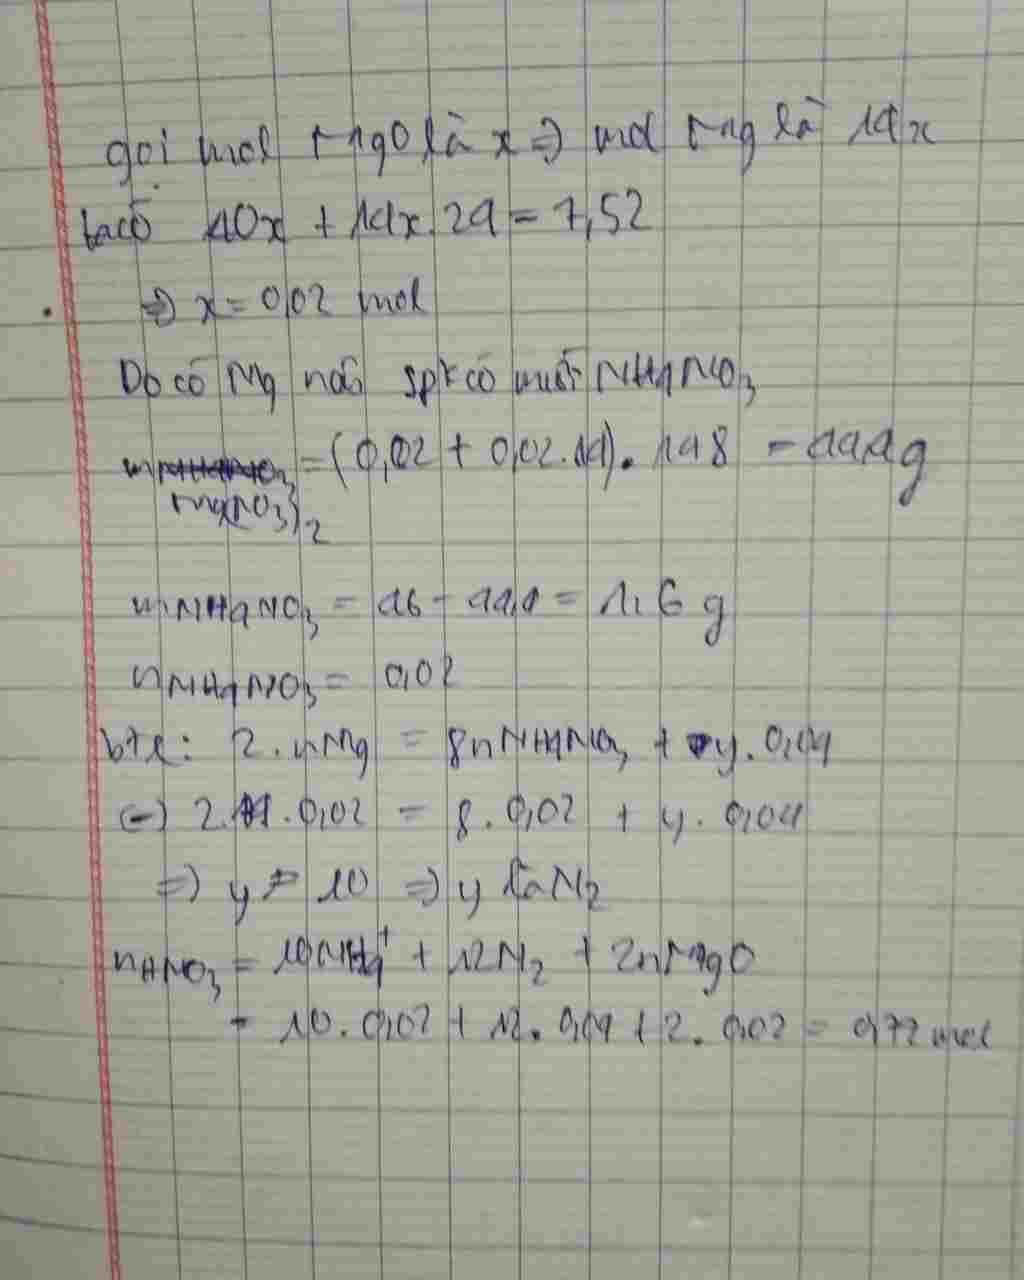 gọi mol MgO là x => mol Mg là 14x
ta có 40x + 14x.24 = 7,52
=> x = 0,02 mol
Do có Mg nên spk có muối NH4NO3
m Mg(NO3)2 = (0,02 + 0,02.14).148 = 44,4g
mNH4NO3 = 46 - 44,4 = 1,6 g
nNH4NO3 = 0,02
bte: 2.nMg = 8nNH4NO3 + y.0,04
(=) 2.14.0,02 = 8.0,02 + y.0,04
=> y = 10 => y là N2
nHNO3 = 10NH4+ + 12N2 + 2nMgO
= 10.0,02 + 12.0,04 + 2.0,02 = 0,72 mol